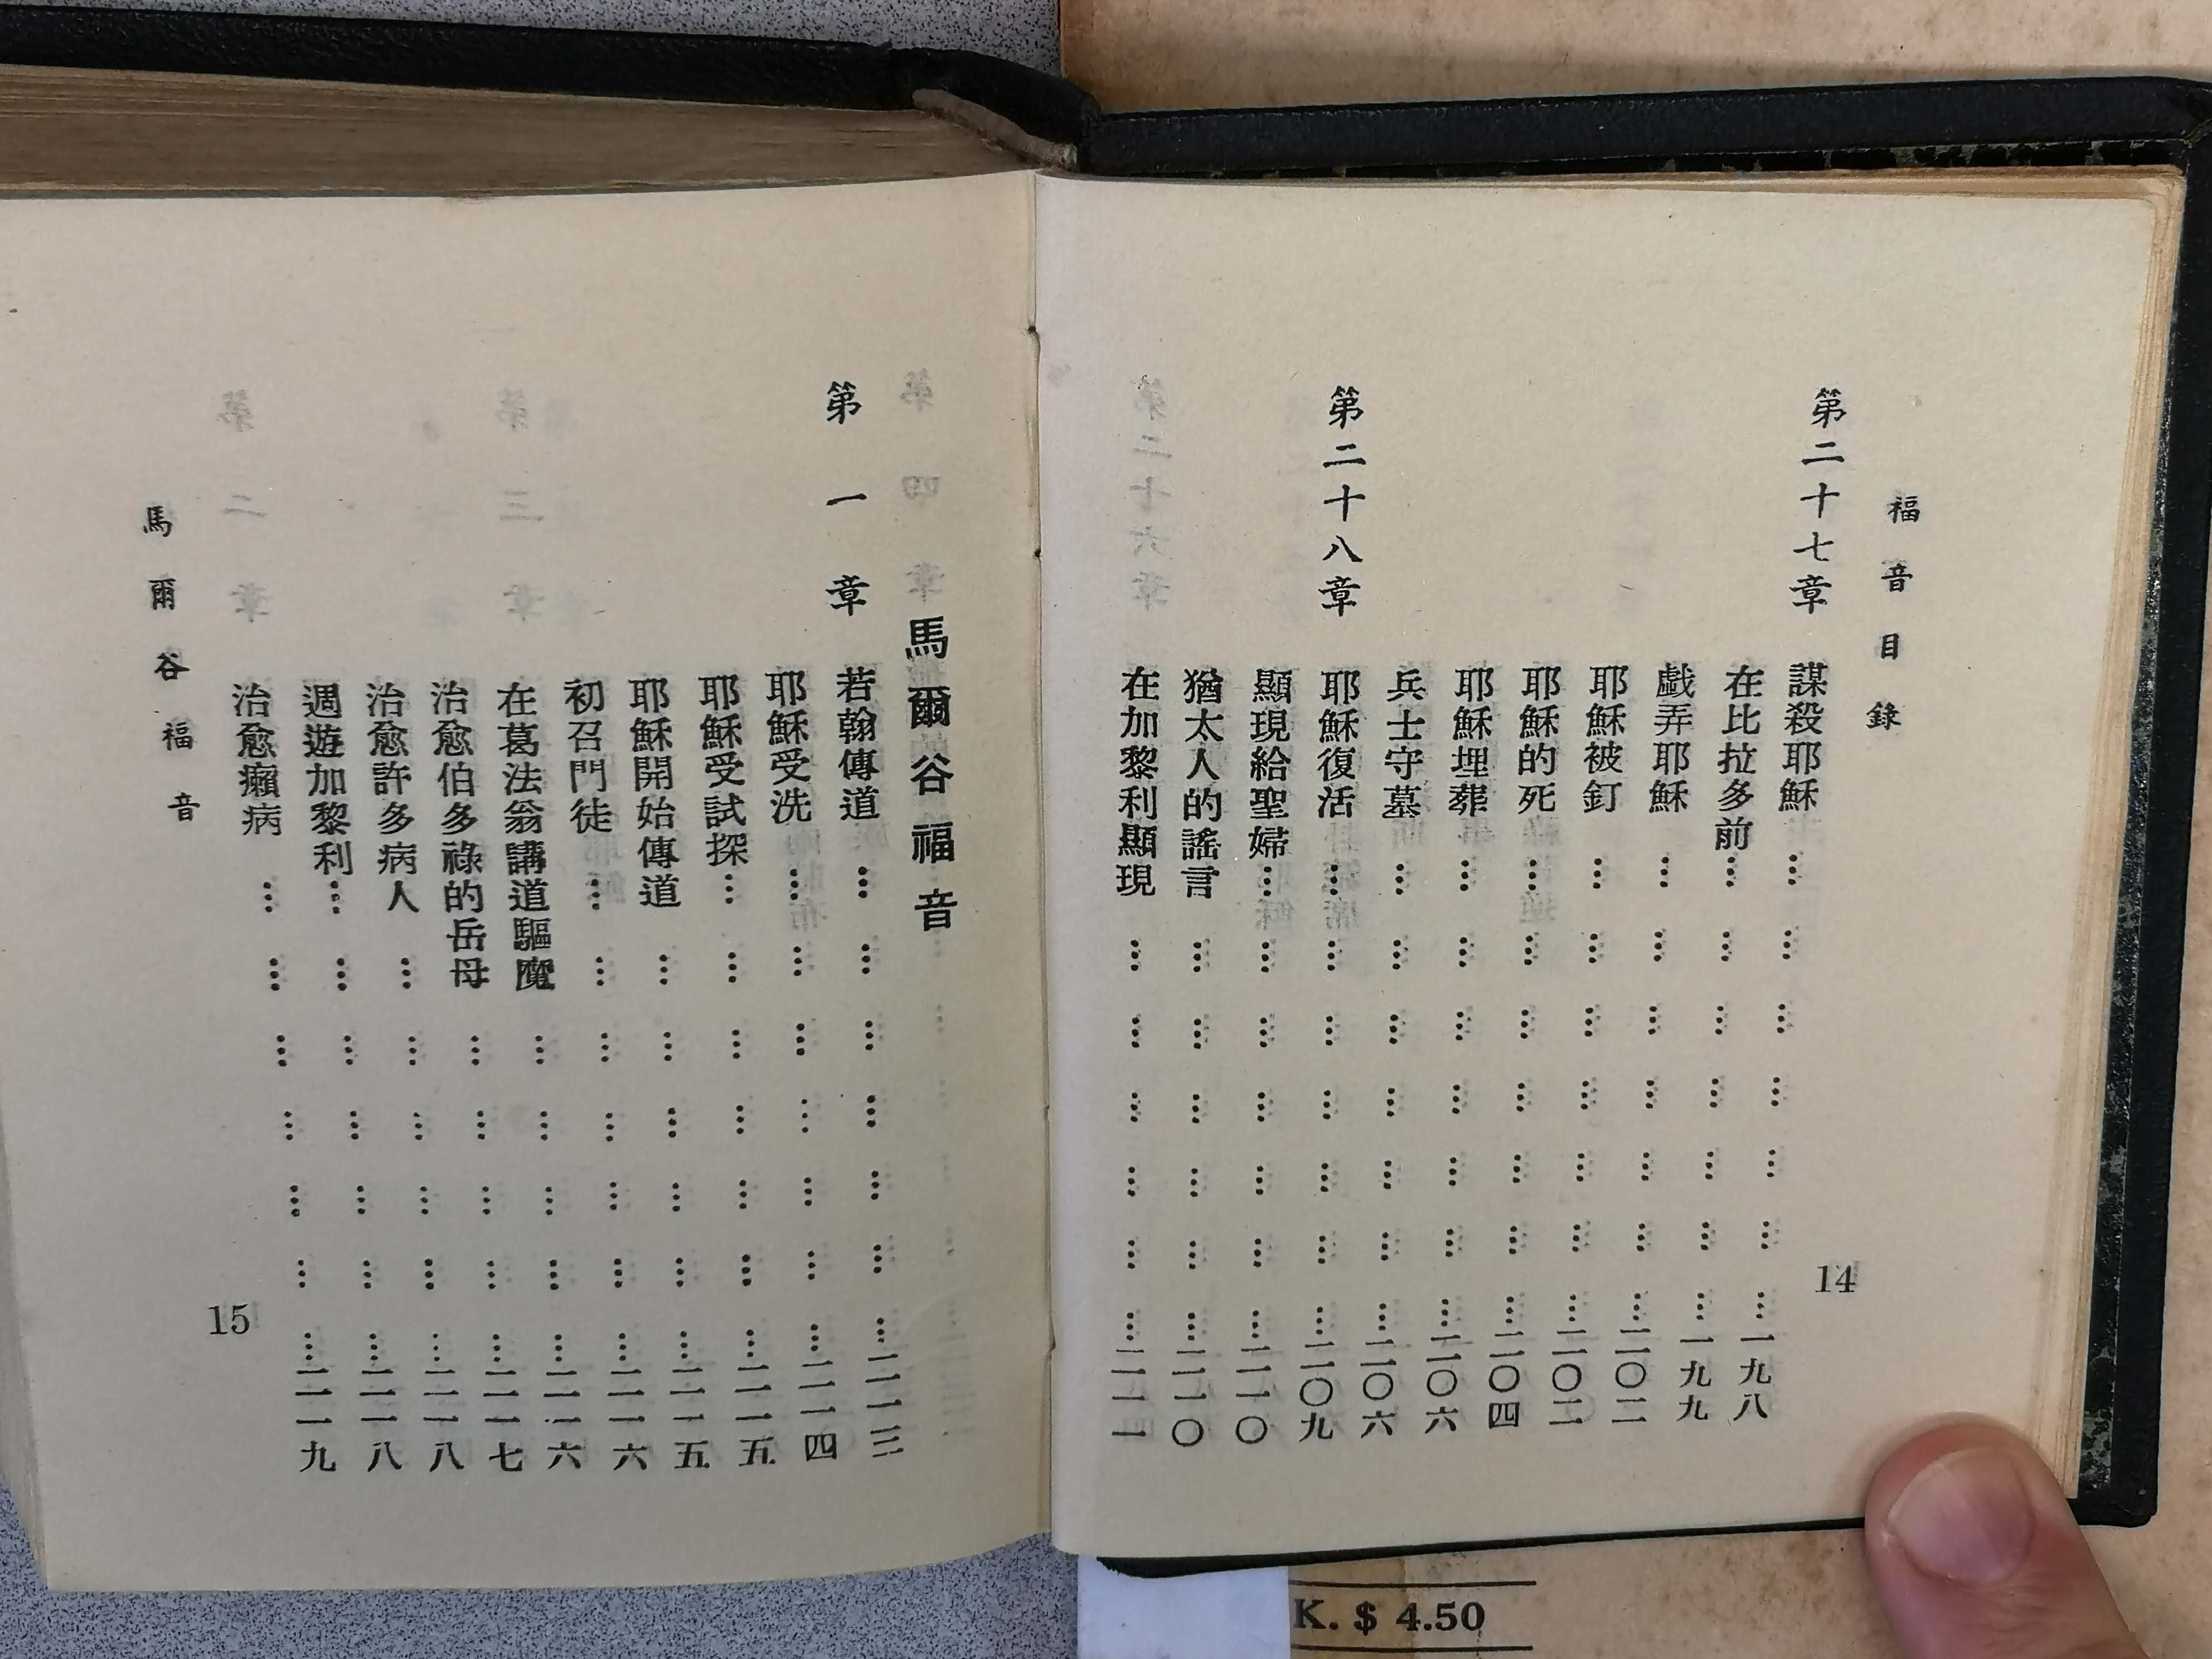 福音目錄
14
第二十七章
謀殺耶穌⋯⋯⋯⋯⋯⋯⋯一九八
在比拉多前⋯⋯⋯⋯⋯⋯⋯一九九
戲弄耶穌⋯⋯⋯⋯⋯⋯⋯二〇二
耶穌被釘⋯⋯⋯⋯⋯⋯⋯二〇二
耶穌的死⋯⋯⋯⋯⋯⋯⋯二〇四
耶穌埋葬⋯⋯⋯⋯⋯⋯⋯二〇六
兵士守墓⋯⋯⋯⋯⋯⋯⋯二〇六
第二十八章
耶穌復活⋯⋯⋯⋯⋯⋯⋯二〇九
顯現給聖婦⋯⋯⋯⋯⋯⋯⋯二一〇
猶太人的謠言⋯⋯⋯⋯⋯⋯二一〇
在加黎利顯現⋯⋯⋯⋯⋯⋯二一一
馬爾谷福音
第一章
若翰傳道⋯⋯⋯⋯⋯⋯⋯二一三
耶穌受洗⋯⋯⋯⋯⋯⋯⋯二一四
耶穌受試探⋯⋯⋯⋯⋯⋯⋯二一五
耶穌開始傳道⋯⋯⋯⋯⋯⋯二一五
初召門徒⋯⋯⋯⋯⋯⋯⋯二一六
在葛法翁講道驅魔⋯⋯⋯⋯⋯二一六
治愈伯多祿的岳母⋯⋯⋯⋯⋯二一七
治愈許多病人⋯⋯⋯⋯⋯⋯二一八
週遊加黎利⋯⋯⋯⋯⋯⋯⋯二一八
治愈癩病⋯⋯⋯⋯⋯⋯⋯二一九
馬爾谷福音
15
K. $ 4.50